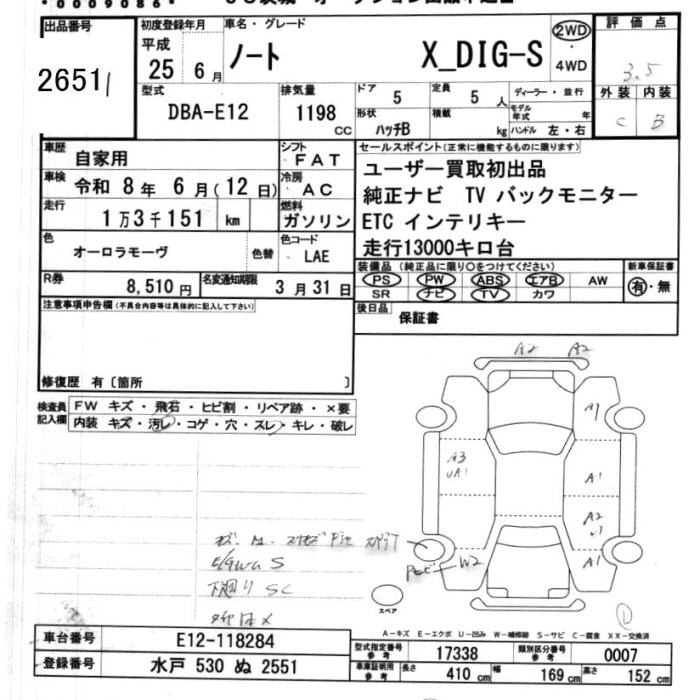 *0009086*
出品番号
26511
初度登録年月
平成
25 6月
車名・グレード
ノート X_DIG-S
2WD
・
4WD
評価点
3.5
外装 内装
C B
型式
DBA-E12
排気量
1198 CC
ドア 5
定員 5 人
形状 ハッチB
積載 kg
ディーラー・並行
モデル年式 年
ハンドル 左・右
車歴 自家用
車検 令和 8年 6月(12日)
走行 1万3千151 km
色 オーロラモーヴ 色替
シフト FAT
冷房 AC
燃料 ガソリン
色コード LAE
R券 8,510円
名変通知期限 3月31日
セールスポイント(正常に機能するものに限ります)
ユーザー買取初出品
純正ナビ TV バックモニター
ETC インテリキー
走行13000キロ台
装備品 (純正品に限り〇をつけてください)
PS PW ABS エアB AW
SR ナビ TV カワ
新車保証書
有・無
後日品 保証書
注意事項申告欄(不具合内容等は具体的に記入して下さい)
修復歴 有〔箇所 〕
検査員記入欄
FW キズ・飛石・ヒビ割・リペア跡・×要
内装 キズ・汚レ・コゲ・穴・スレ・キレ・破レ
A2 A2
A1
A3
UA1
A1
A2
A1
W2
下廻り SC
スペア
A-キズ E-エクボ U-凹み W-補修跡 S-サビ C-腐食 XX-交換済
車台番号 E12-118284
登録番号 水戸 530 ぬ 2551
型式指定番号 参考 17338
類別区分番号 参考 0007
車庫証明用 参考 長さ 410 cm 幅 169 cm 高さ 152 cm